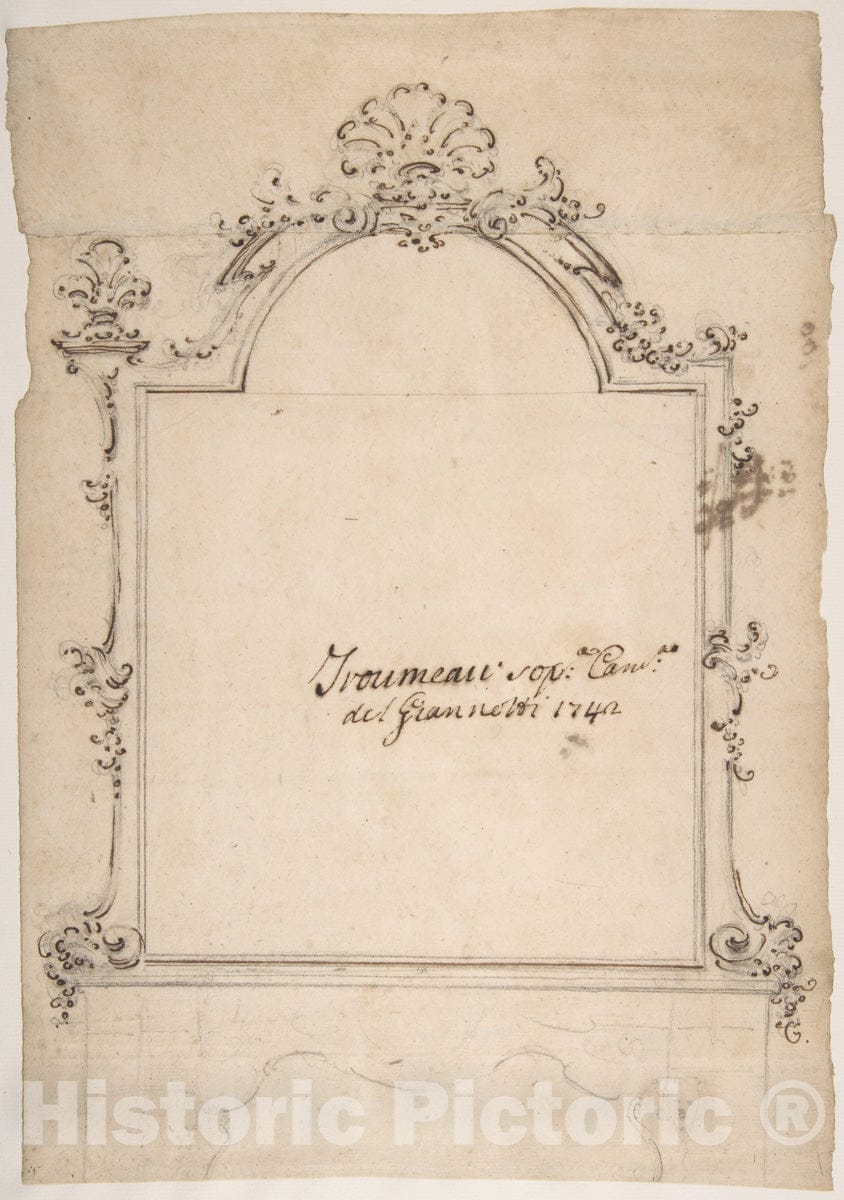 Troumeau sop:ª Cam:ª
del Giannotti 1742
Historic Pictoric ®